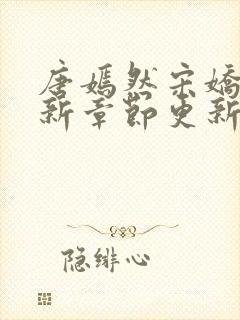 唐嫣然宋嬌
新章節更新
隐绯心